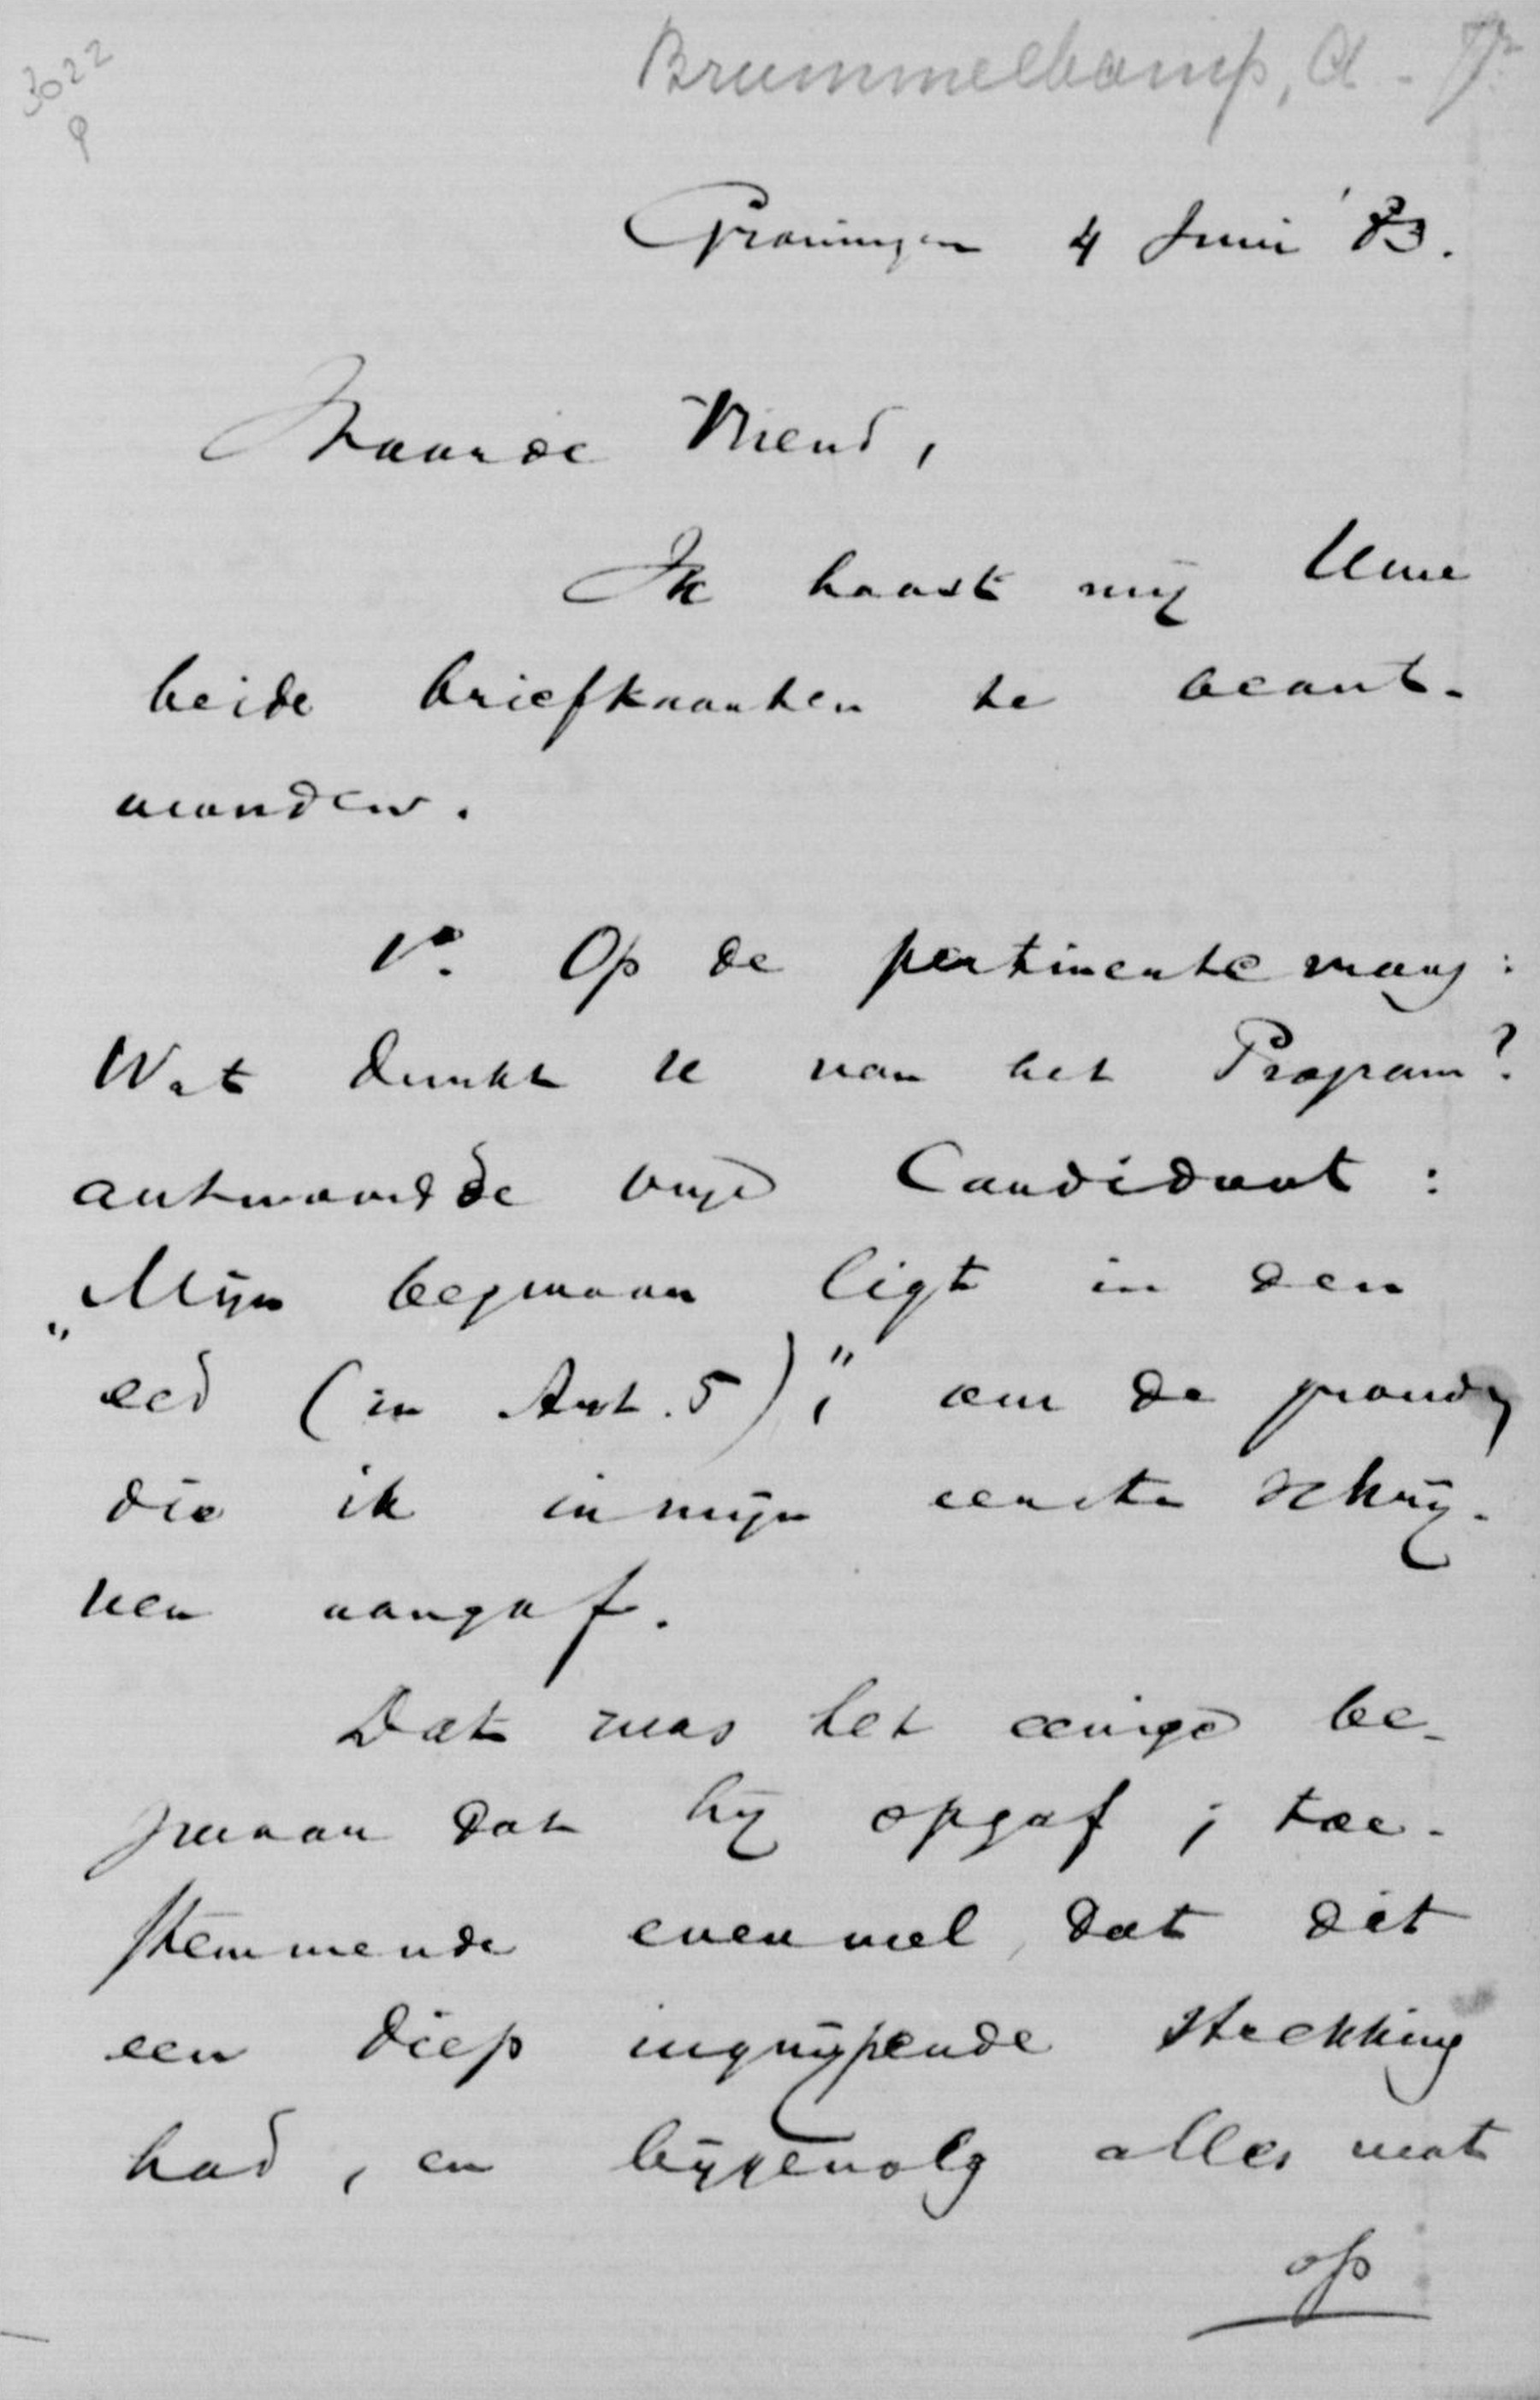 3022
9
Brummelkamp, A - Jr.
Groningen 4 Juni '83.
Waarde Vriend,
Ik haast mij Uwe
beide briefkaarten te beant-
woorden.
1º. Op de pertinente vraag:
Wat dunkt U van het Program?
antwoordde onze Candidaat:
„Mijn bezwaar ligt in den
eed (in Art. 5)"; om de gronden
die ik in mijn eerste schrij-
ven aangaf.
Dat was het eenige be-
zwaar dat hij opgaf; toe-
stemmende evenwel, dat dit
een diep ingrijpende strekking
had, en bijgevolg alles wat
op